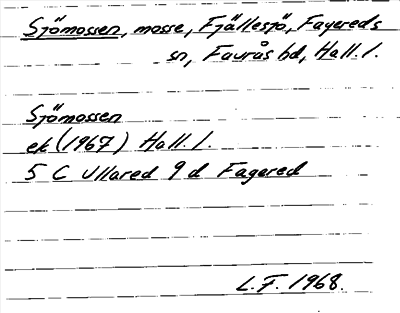 Sjömossen, mosse, Fjällesjö, Fagereds
sn, Faurås hd, Hall. l.
Sjömossen
ek (1967) Hall. l.
5 C Ullared 9 d Fagered
L.F. 1968.